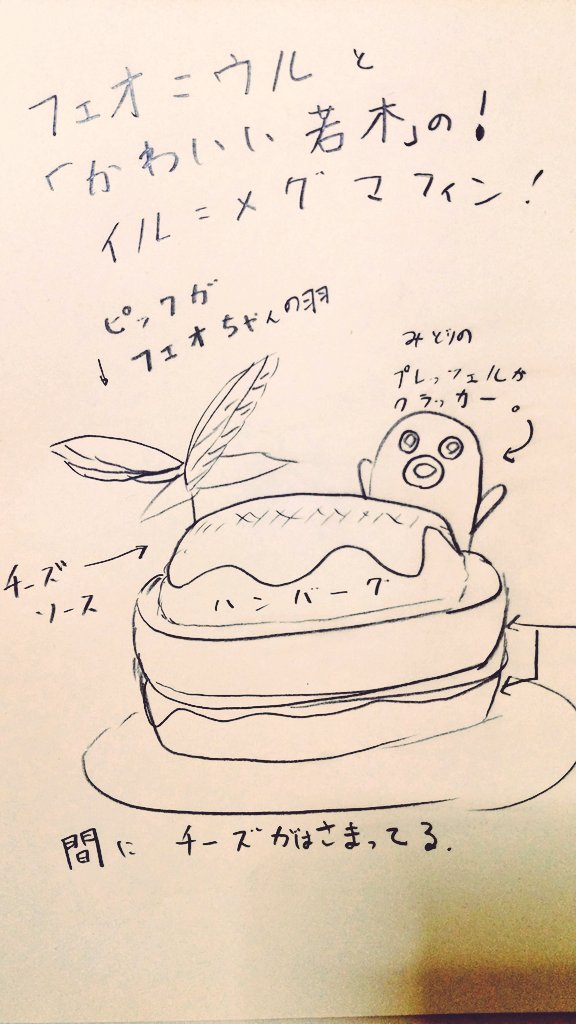 フェオ=ウルと
「かわいい若木」の!
イル=メグマフィン!
ピックが
フェオちゃんの羽
みどりの
プレッツェルか
クラッカー。
チーズ
ソース
ハンバーグ
間にチーズがはさまってる.